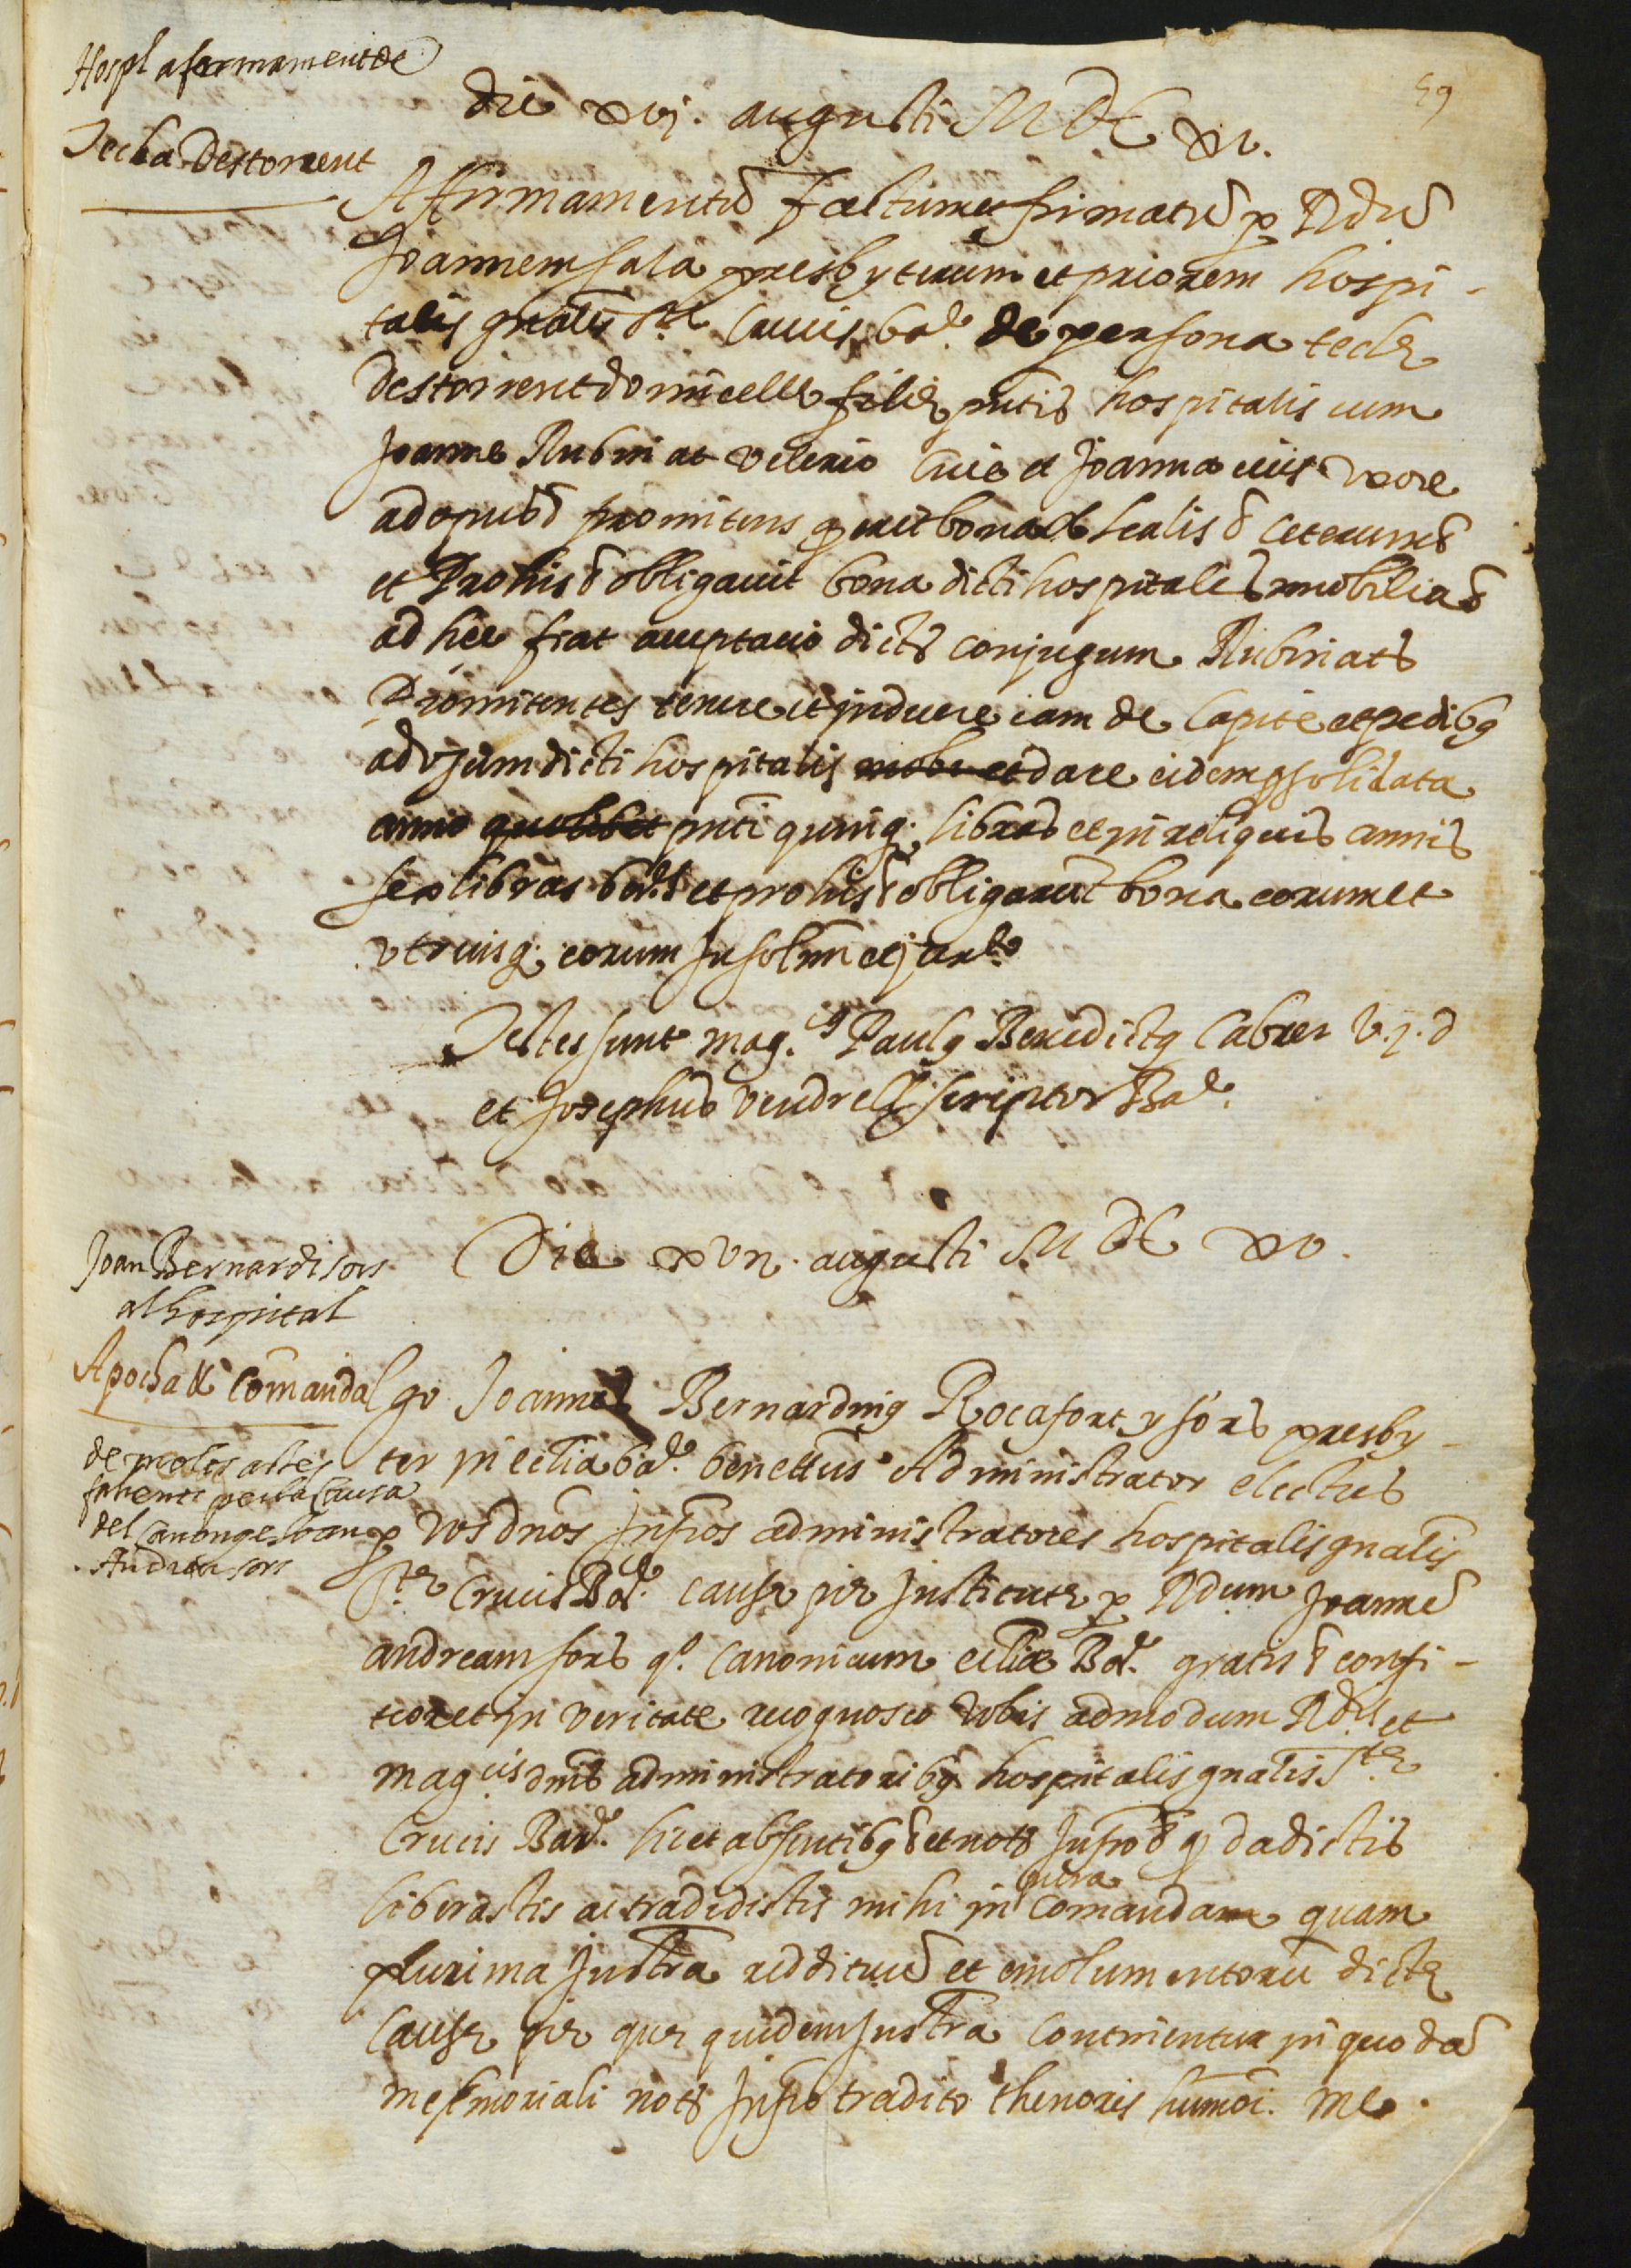 59
Hospl afermament de
Tecla Destorrent
die xvj. augusti MDC xv.
Affirmamentū factum et firmatū p Rdū
Joannem sala presbyterum et priorem hospi-
talis gñalis Ste. Crucis bar.e de persona tecle
destorrent domicelle filie pntis hospitalis cum
Joanne Rubiniat velerio cive et Joanna eius vxore
ad opus promitens q erit bona et lealis & ceterum &
et Pro his & obligavit bona dicti hospitalis mobilia &
ad hec fiat acceptacio dictor conjugum Rubiniats
Promitentes tenere et induere eam de capite et pedibg
ad vsum dicti hospitalis et dare eidem p solidata
anno quolibet pnti quinq. libras et in reliquis annis
sex libras bar. & et pro his & obligarūt bona eorum et
vtriusq. eorum Insolm et jurt.o
Testes sunt mag.cs Paulg Benedictg Cabrer V.J.d
et Josephus Vendrell scriptor Bar.e
Die xvij. augusti MDC xv.
Joan Bernardi sors
al hospital
Apocha & comanda
de moltes altes
fahents per la causa
del Canonge Joan
Andreu sors
Ego Joannes Bernarding Rocafort y sors presby-
ter in ecclia bar.e benettus Administrator electus
p vos dnos Infros administratores hospitalis gnalis
Ste Crucis Bar.e cause pie Institute p Rdum Joannē
andream sors q.o canonicum ecclie Bar.e gratis & confi-
teor et in veritate recognosco vobis admodum Rdis et
mag.cis dnis administratoribg hospitalis gnalis Ste
Crucis Bar.e hic et absentibg & et notº Infro & q dadictis
liberastis ac tradidistis mihi in pura comandam quam
plurima Instra reddituū et emolumentorū dicte
cause pie que quidem Instra continentur in quodā
memoriali notº Infro tradito thenoris humōi. Me.